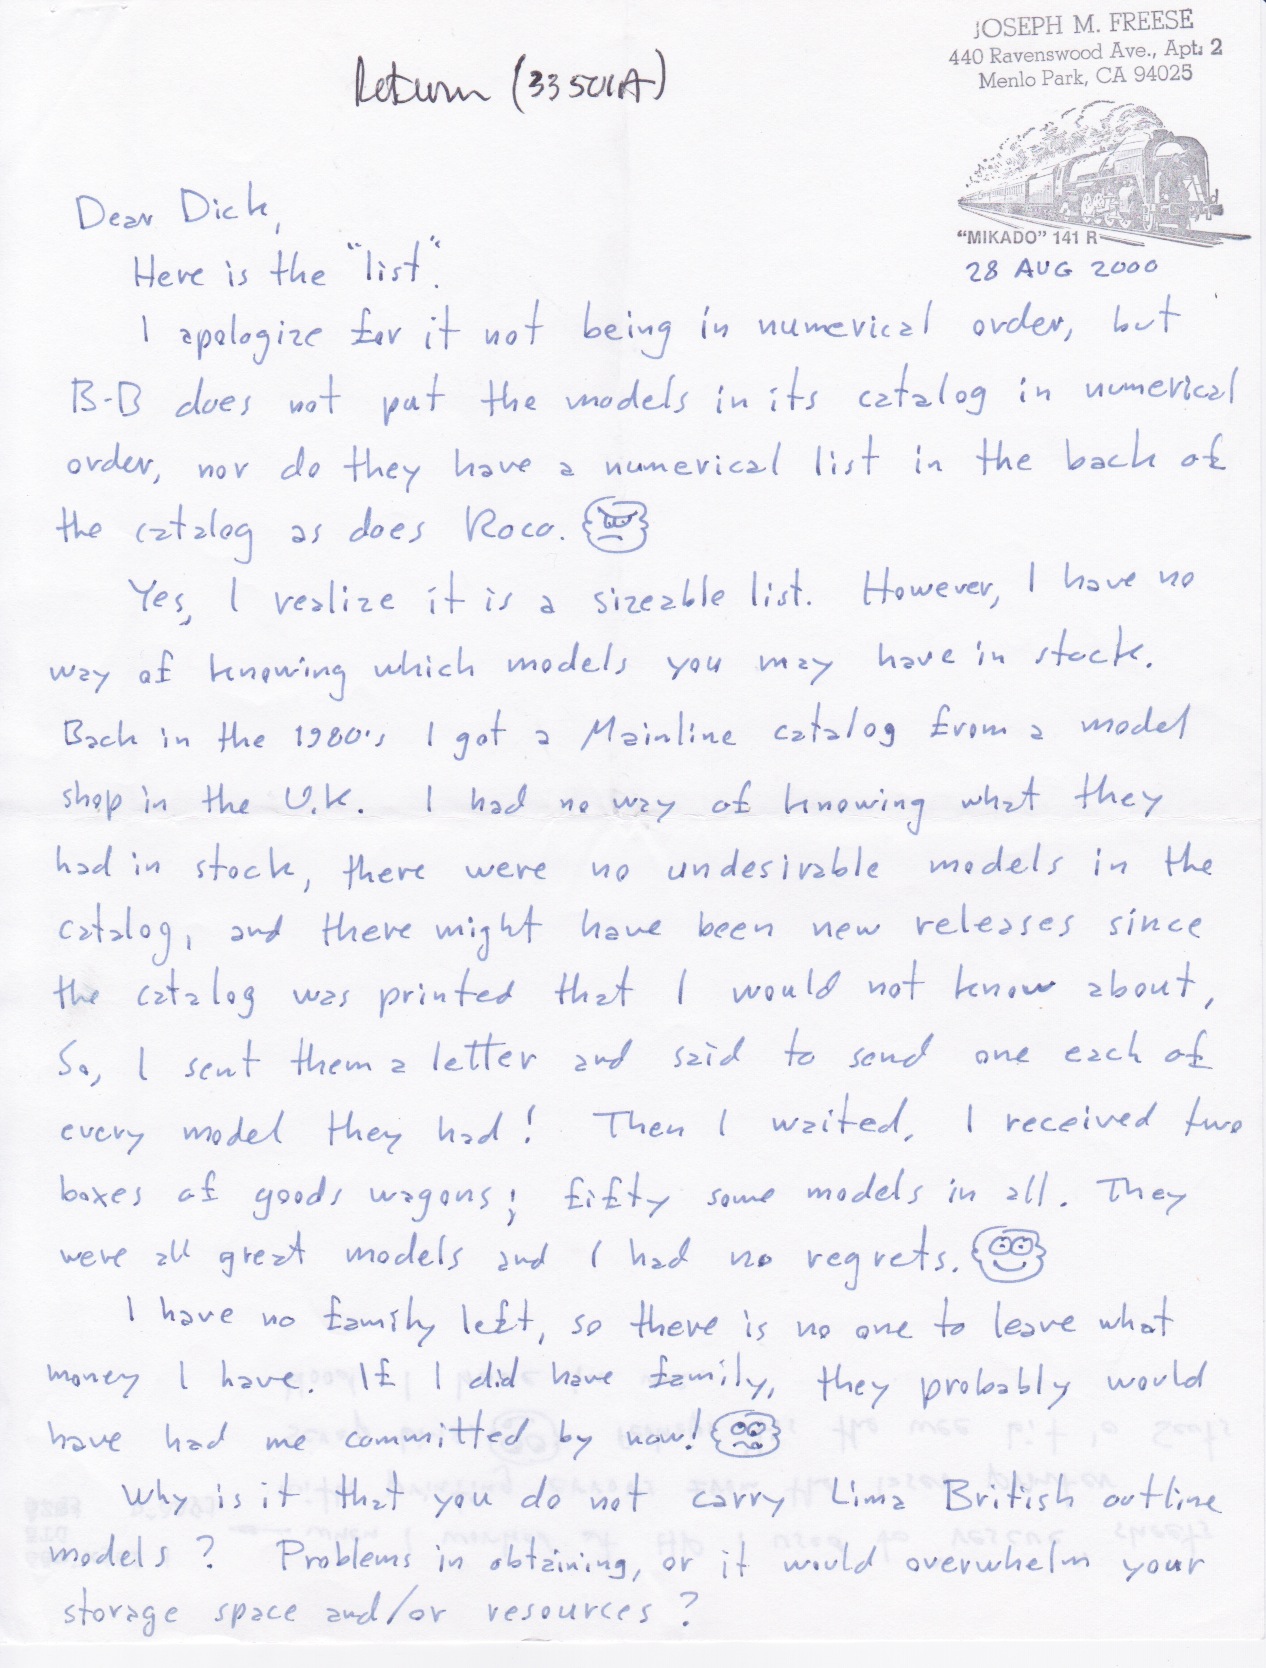 JOSEPH M. FREESE
440 Ravenswood Ave., Apt. 2
Menlo Park, CA 94025
Return (33501A)
"MIKADO" 141 R
28 AUG 2000
Dear Dick,
Here is the "list".
I apologize for it not being in numerical order, but
B-B does not put the models in its catalog in numerical
order, nor do they have a numerical list in the back of
the catalog as does Roco.
Yes, I realize it is a sizeable list. However, I have no
way of knowing which models you may have in stock.
Back in the 1980's I got a Mainline catalog from a model
shop in the U.K. I had no way of knowing what they
had in stock, there were no undesirable models in the
catalog, and there might have been new releases since
the catalog was printed that I would not know about,
So, I sent them a letter and said to send one each of
every model they had! Then I waited. I received two
boxes of goods wagons; fifty some models in all. They
were all great models and I had no regrets.
I have no family left, so there is no one to leave what
money I have. If I did have family, they probably would
have had me committed by now!
Why is it that you do not carry Lima British outline
models? Problems in obtaining, or it would overwhelm your
storage space and/or resources?